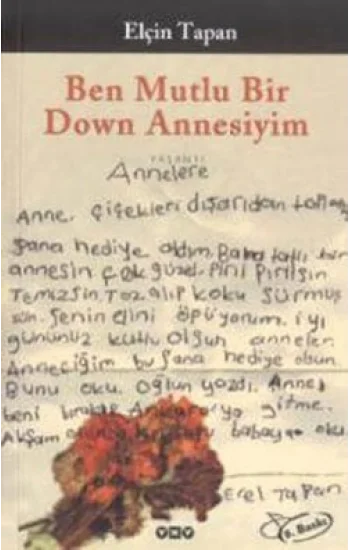 Elçin Tapan
Ben Mutlu Bir
Down Annesiyim
YAŞANTI
Annelere
Anne, çiçekleri dışarıdan
sana hediye aldım. Bana tatlı bir
annesin çok güzel. Pırıl pırılsın
Temizsin. Toz alıp koku sürmüş
sün. Senin elini öpüyorum. iyi
gününüz kutlu olsun anneler.
Anneciğim bu sana hediye olsun.
Bunu oku. oğlun yazdı. Anne
beni bırakıp Ankara'ya gitme.
Akşam babaya oku
Erel Tapan
YKY
8. Baskı